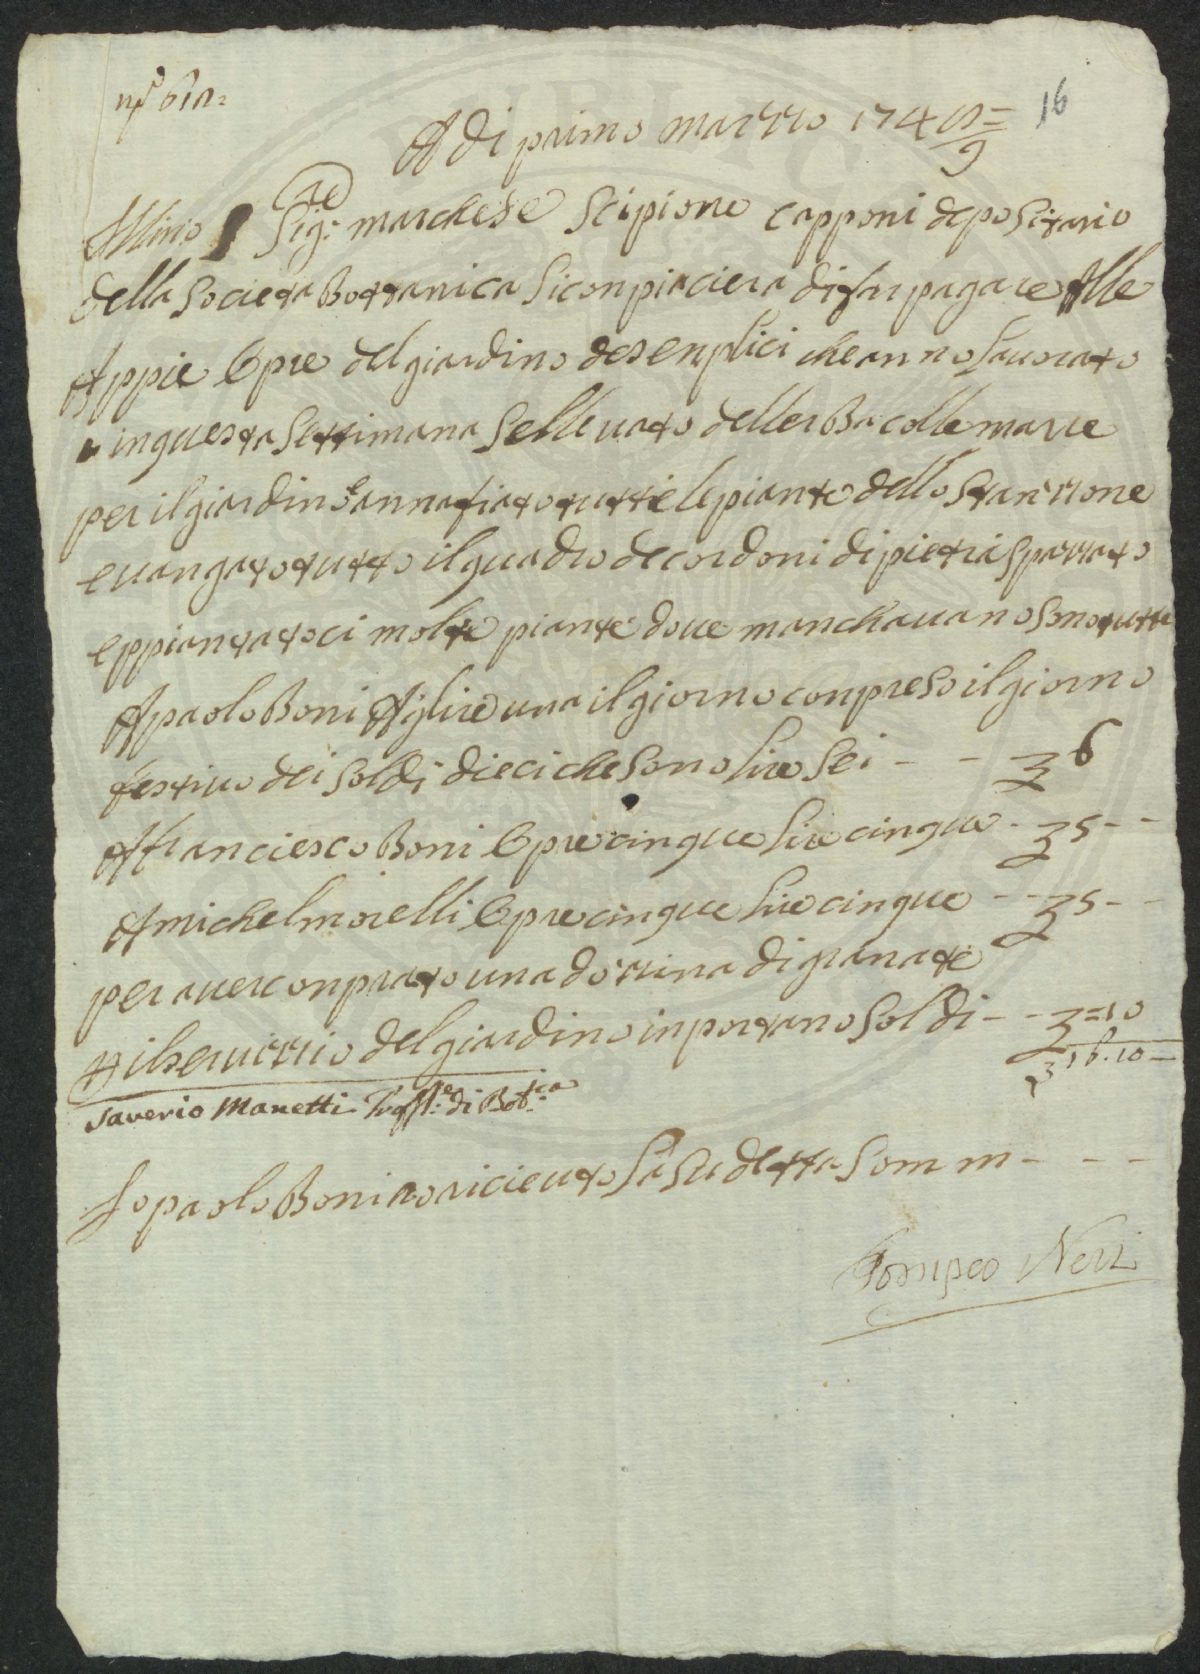 16
A di primo marzzo 1748/9
Sig:re marchese Scipione Capponi depositario
della Societa Bottanica Si conpiaciera di far pagare Alle
Appie Opre del giardino de senplici che anno lauorato
in questa Settimana Selleuato dellerba colle marre
per il giardino e annafiato tutte le piante dello Stanzzone
e uangato tutto il guadro de cordoni di pietra Spazzato
e ppiantatoci molte piante doue manchauano Sono tutte
A paolo Boni A lire una il giorno conpreso il giorno
festiuo dei Soldi dieci che Sono lire Sei - - 6
A franciesco Boni Opre cinque lire cinque - 5 - -
A michel morelli Opre cinque lire cinque - - 5 - -
per auer conprato una dozzina di granate
p il seruizzio del giardino inportano Soldi - - = 10
16.10 —
Saverio Manetti Proff:re di Bot:ca
Io paolo Boni o riceuto la Su detta Somm - - -
Pompeo Neri